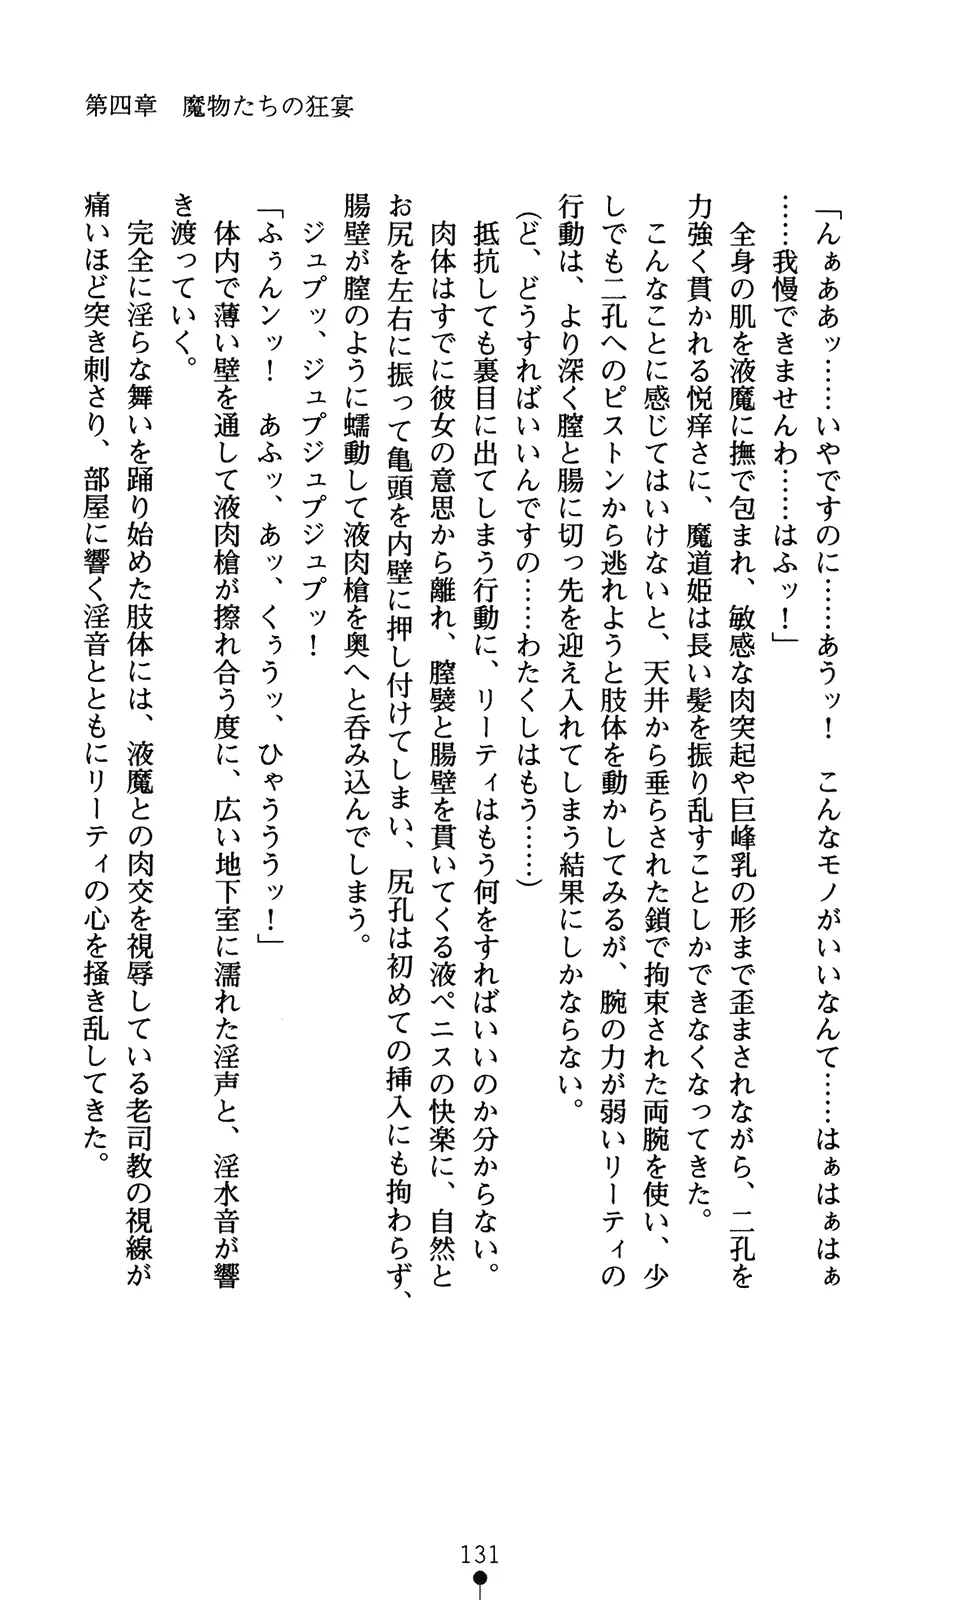 第四章　魔物たちの狂宴
「んぁああッ……いやですのに……あうッ！　こんなモノがいいなんて……はぁはぁはぁ
……我慢できませんわ……はふッ！」
　全身の肌を液魔に撫で包まれ、敏感な肉突起や巨峰乳の形まで歪まされながら、二孔を
力強く貫かれる悦痒さに、魔道姫は長い髪を振り乱すことしかできなくなってきた。
　こんなことに感じてはいけないと、天井から垂らされた鎖で拘束された両腕を使い、少
しでも二孔へのピストンから逃れようと肢体を動かしてみるが、腕の力が弱いリーティの
行動は、より深く膣と腸に切っ先を迎え入れてしまう結果にしかならない。
（ど、どうすればいいんですの……わたくしはもう……）
　抵抗しても裏目に出てしまう行動に、リーティはもう何をすればいいのか分からない。
　肉体はすでに彼女の意思から離れ、膣襞と腸壁を貫いてくる液ペニスの快楽に、自然と
お尻を左右に振って亀頭を内壁に押し付けてしまい、尻孔は初めての挿入にも拘わらず、
腸壁が膣のように蠕動して液肉槍を奥へと呑み込んでしまう。
　ジュプッ、ジュプジュプジュプッ！
「ふぅんンッ！　あふッ、あッ、くぅうッ、ひゃうううッ！」
　体内で薄い壁を通して液肉槍が擦れ合う度に、広い地下室に濡れた淫声と、淫水音が響
き渡っていく。
　完全に淫らな舞いを踊り始めた肢体には、液魔との肉交を視辱している老司教の視線が
痛いほど突き刺さり、部屋に響く淫音とともにリーティの心を掻き乱してきた。
131